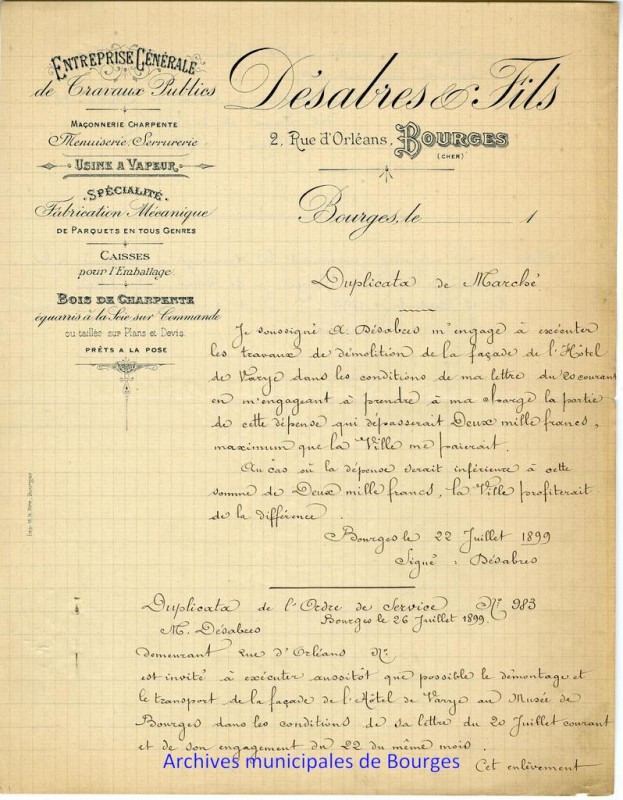 ENTREPRISE GÉNÉRALE
de Travaux Publics
MAÇONNERIE CHARPENTE
Menuiserie, Serrurerie
USINE A VAPEUR
SPÉCIALITÉ
Fabrication Mécanique
DE PARQUETS EN TOUS GENRES
CAISSES
pour l'Emballage
BOIS DE CHARPENTE
équarris à la Scie sur Commande
ou taillés sur Plans et Devis
PRÊTS A LA POSE
Désabres & Fils
2, Rue d'Orléans, BOURGES
(CHER)
Bourges, le 1
Duplicata de Marché
Je soussigné A. Désabres m'engage à exécuter
les travaux de démolition de la façade de l'Hôtel
de Varye dans les conditions de ma lettre du 20 courant
en m'engageant à prendre à ma charge la partie
de cette dépense qui dépasserait Deux mille francs,
maximum que la Ville me paierait.
Au cas où la dépense serait inférieure à cette
somme de Deux mille francs, la Ville profiterait
de la différence.
Bourges le 22 Juillet 1899
Signé : Désabres
Duplicata de l'Ordre de Service No 983
Bourges le 26 Juillet 1899.
M. Désabres
demeurant rue d'Orléans No
est invité à exécuter aussitôt que possible le démontage et
le transport de la façade de l'Hôtel de Varye au Musée de
Bourges dans les conditions de sa lettre du 20 Juillet courant
et de son engagement du 22 du même mois.
Cet enlèvement
Archives municipales de Bourges